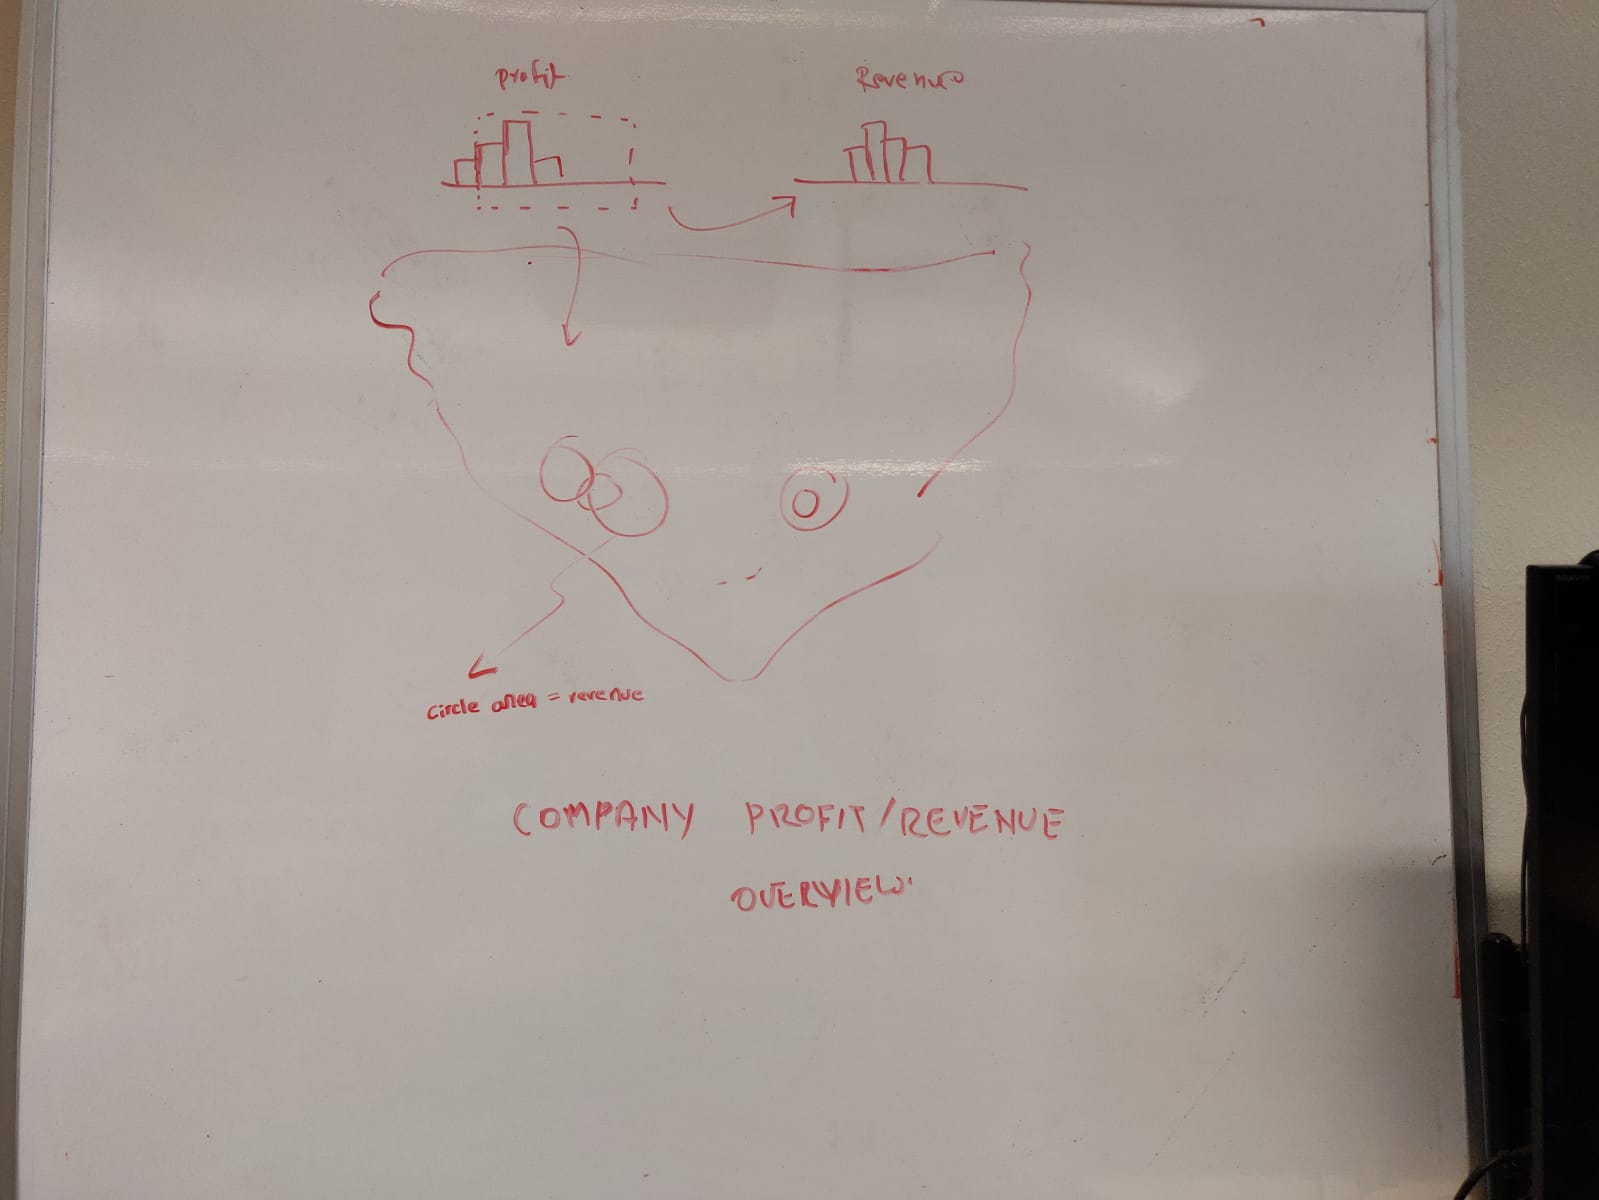 profit
Revenue
circle area = revenue
COMPANY PROFIT/REVENUE
OVERVIEW.